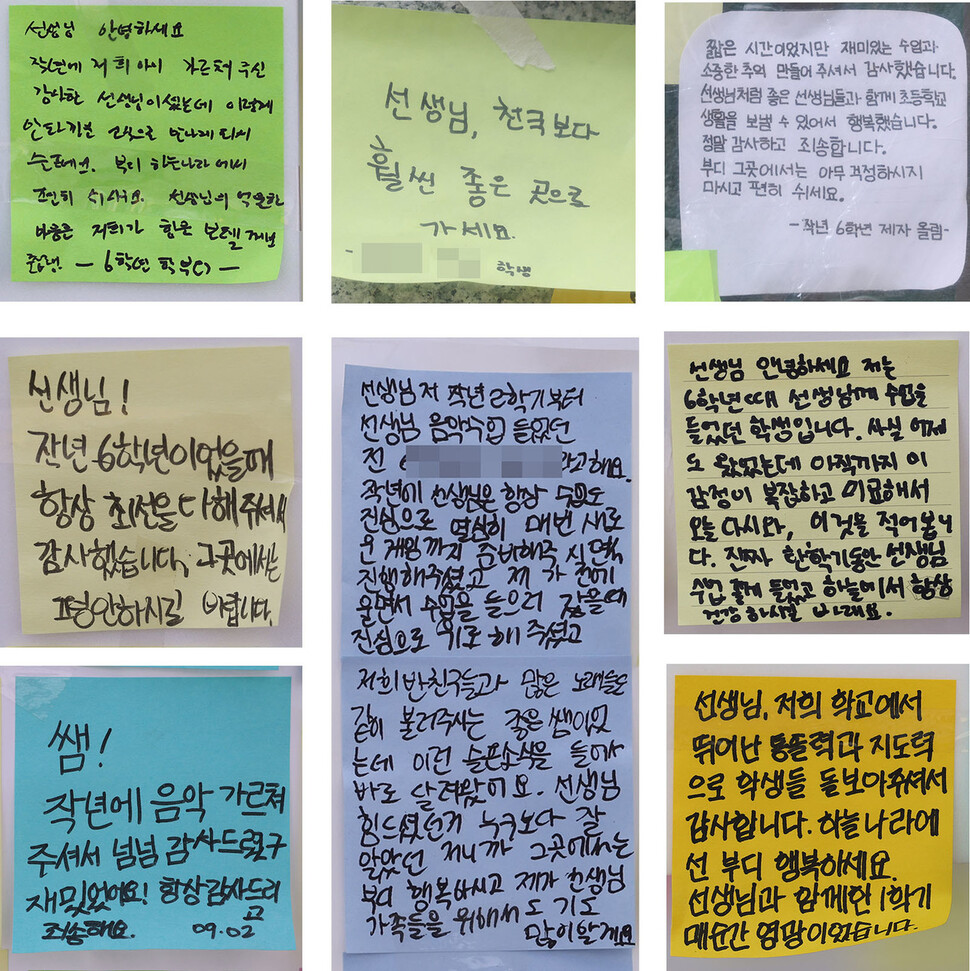 선생님 안녕하세요
작년에 저희 아이 가르쳐 주신
감사한 선생님이셨는데 이렇게
안타까운 만나게 되서
슬프네요. 부디 하늘나라에서
편히 쉬세요. 선생님의 억울한
저희가
6학년 학부모
선생님, 천국보다
훨씬 좋은 곳으로
가세요.
- 학생
짧은 시간이었지만 재미있는 수업과
소중한 추억 만들어 주셔서 감사했습니다.
선생님처럼 좋은 선생님들과 함께 초등학교
생활을 보낼 수 있어서 행복했습니다.
정말 감사하고 죄송합니다.
부디 그곳에서는 아무 걱정하시지
마시고 편히 쉬세요.
-작년 6학년 제자 올림-
선생님!
작년 6학년이었을때
항상 최선을 다해주셔서
감사했습니다, 그곳에서는
평안하시길 바랍니다.
선생님 저 작년 2학기부터
선생님 음악수업 들었던
전 6 라고해요.
작년에 선생님은 항상 수업도
진심으로 열심히 매번 새로
운 게임까지 준비해주시면서
진행해주셨고 제가
울면서 수업을 들으러 갔을때
진심으로 위로 해 주셨고
저희 반친구들과 많은 노래들도
같이 불러주시는 좋은 쌤이었
는데 이런 슬픈소식을 들어서
바로 달려왔어요. 선생님
힘드셨던거 누구보다 잘
알았던 저니까 그곳에서는
부디 행복하시고 제가 선생님
가족들을 위해서도 기도
많이할게요
선생님 안녕하세요 저는
6학년때 선생님께 수업을
들었던 학생입니다. 사실 어제
도 왔었는데 아직까지 이
감정이 복잡하고 미묘해서
오늘 다시와, 이것을 적어봅니
다. 진짜 한학기동안 선생님
수업 좋게 들었고 하늘에서 항상
건강하시길 바래요.
쌤!
작년에 음악 가르쳐
주셔서 넘넘 감사드렸구
재밌었어요! 항상감사드리
고
죄송해요. 09.02
선생님, 저희 학교에서
뛰어난 통솔력과 지도력
으로 학생들 돌보아주셔서
감사합니다. 하늘나라에
선 부디 행복하세요.
선생님과 함께한 1학기
매순간 영광이었습니다.